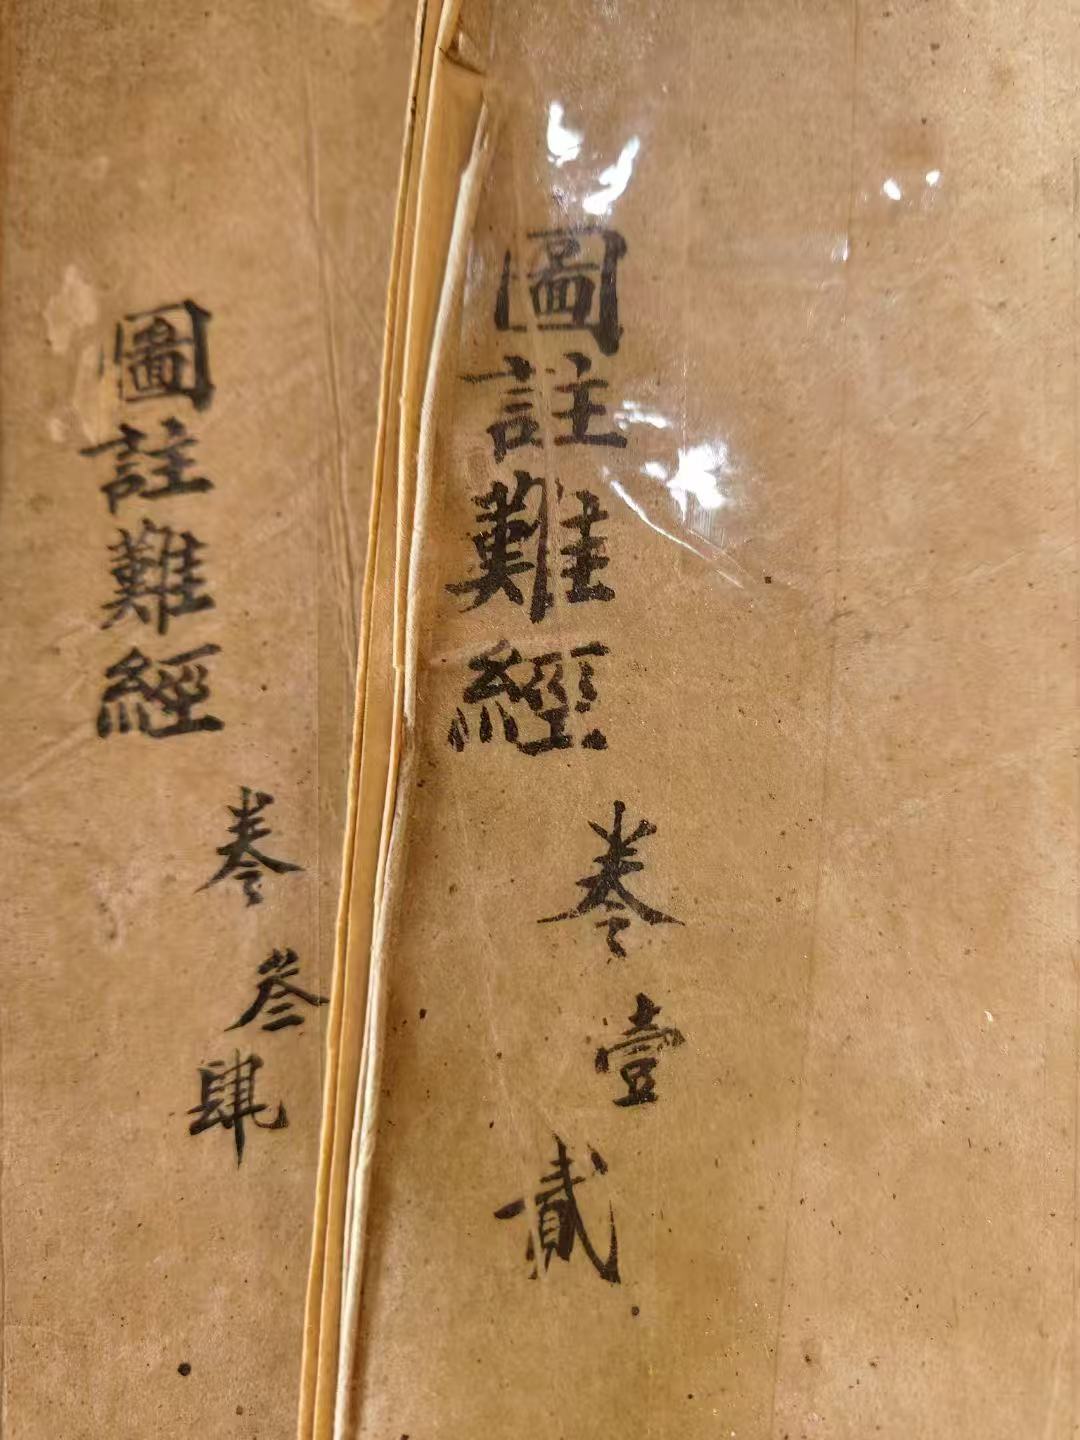 圖註難經
卷壹
貳
圖註難經
卷叁
肆